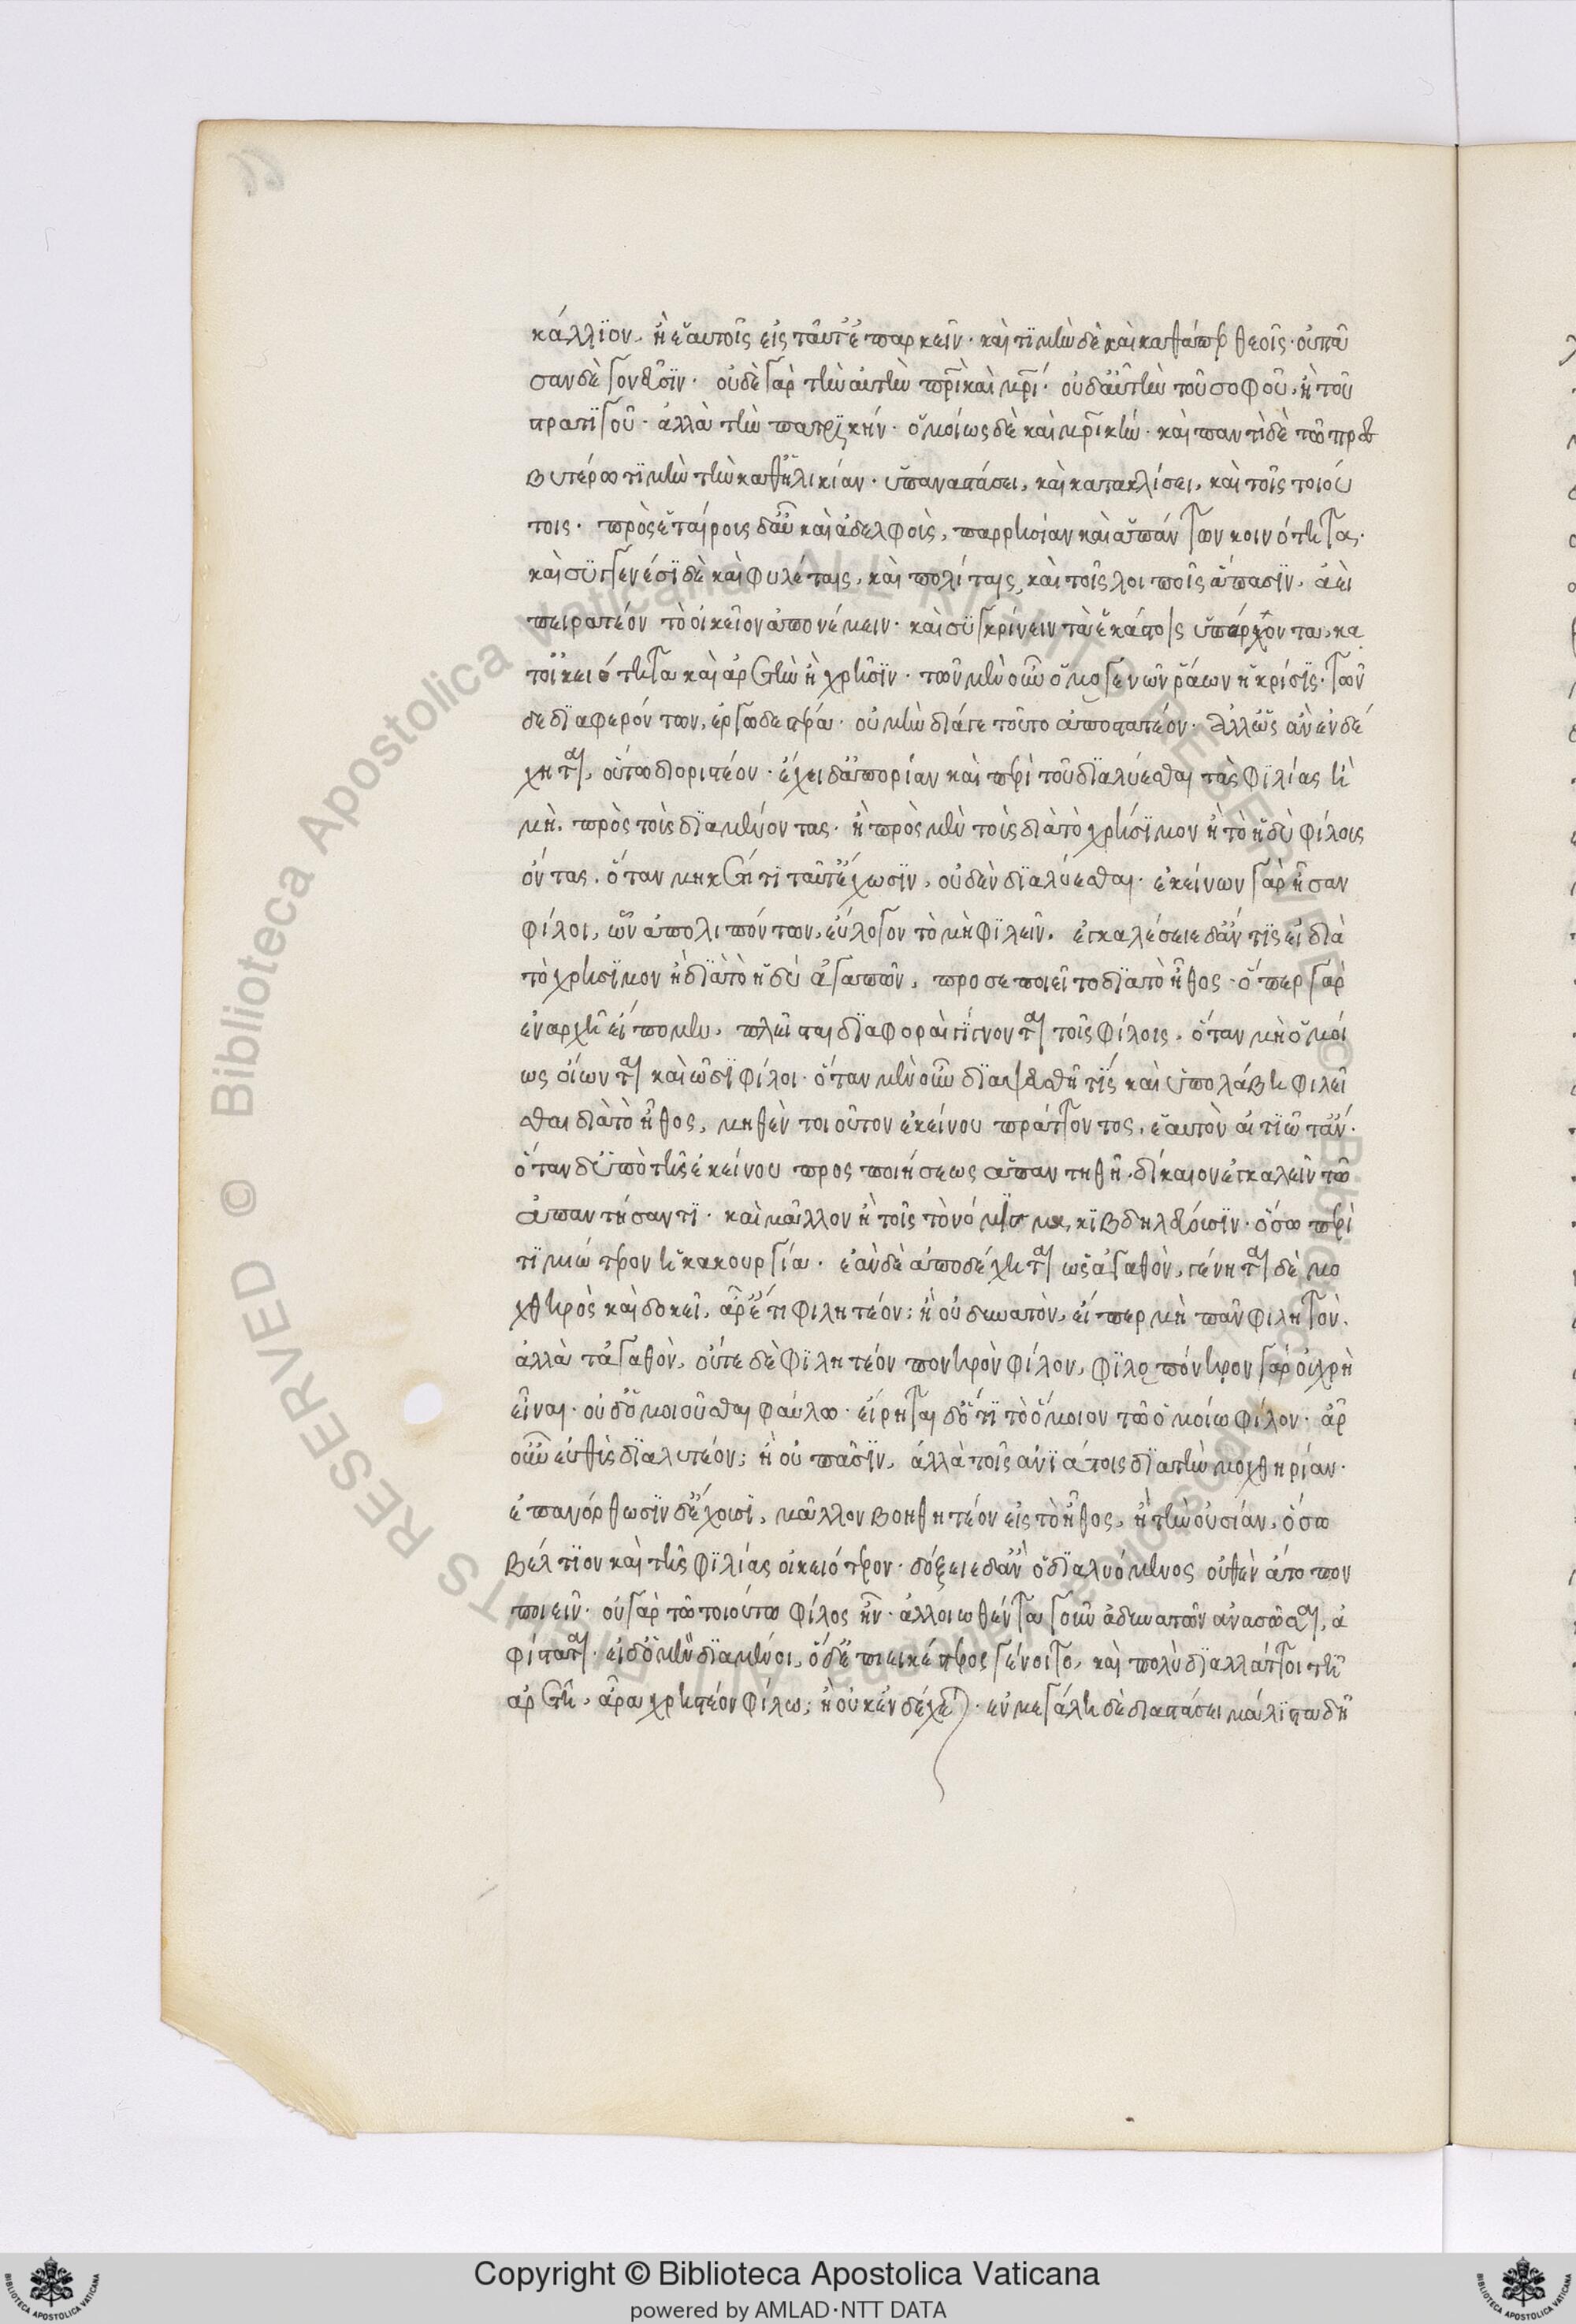 κάλλϊον. ἢ ἑαυτοῖς εἰς ταῦτ' ἐπαρκεῖν· καὶ τϊμὴν δὲ καὶ καθάπερ θεοῖς· οὐ πᾶ
σαν δὲ γονεῦσϊν· οὐδὲ γὰρ τὴν αὐτὴν πρὶ καὶ μρί· οὐδ' αὖ τὴν τοῦ σοφοῦ, ἢ τοῦ
στρατϊγοῦ· ἀλλὰ τὴν πατρϊκήν· ὁμοίως δὲ καὶ μρικήν· καὶ παντὶ δὲ τῶ πρεσ
βυτέρω τϊμὴν τὴν καθ' ἡλικίαν· ὑπαναστάσει, καὶ κατακλίσει, καὶ τοῖς τοιού
τοις· πρὸς ἑταίροις δ' αὖ καὶ ἀδελφοὶς, παρρησίαν καὶ ἁπάντων κοινότητας·
καὶ συγγενέσϊ δὲ καὶ φυλέταις, καὶ πολίταις, καὶ τοῖς λοιποῖς ἅπασϊν, ἀεὶ
πειρατέον τὸ οἰκεῖον ἀπονέμειν· καὶ συγκρίνειν τὰ ἑκάστοις ὑπάρχοντα, κα
τ' οἰκειότητα καὶ ἀρετὴν ἢ χρῆσϊν· τῶν μὲν οὖν ὁμογενῶν ῥάων ἡ κρίσϊς· τῶν
δε διαφερόντων, ἐργωδεστέρα· οὐ μὴν διά γε τοῦτο ἀποστατέον· ἀλλ' ὡς ἂν ἐνδέ
χηται, οὕτω διοριστέον· ἔχει δ' ἀπορίαν καὶ περὶ τοῦ δϊαλύεσθαι τὰς φϊλίας ἢ
μὴ. πρὸς τοὶς δϊαμένοντας· ἢ πρὸς μὲν τοὶς διὰ τὸ χρήσϊμον ἢ τὸ ἡδὺ φίλοις
ὄντας. ὅταν μηκέτι ταῦτ' ἔχωσϊν, οὐδὲν δϊαλύεσθαι· ἐκείνων γὰρ ἦσαν
φίλοι, ὧν ἀπολιπόντων, εὔλογον τὸ μὴ φϊλεῖν. ἐγκαλέσειε δ' ἄν τϊς εἰ διὰ
τὸ χρησϊμον ἢ δϊὰ τὸ ἡδὺ ἀγαπῶν, προσεποιεῖτο δϊὰ τὸ ἦθος· ὅπερ γὰρ
ἐν ἀρχῆ εἴπομεν, πλεῖσται δϊαφοραὶ γίνονται τοῖς φίλοις, ὅταν μὴ ὁμοί
ως οἴωνται καὶ ὦσϊ φίλοι· ὅταν μὲν οὖν δϊαψευσθῆ τϊς καὶ ὑπολάβη φιλεῖ
σθαι διὰ τὸ ἦθος, μηθὲν τοιοῦτον ἐκείνου πράττοντος, ἑαυτὸν αἰτϊῶτ' ἄν·
ὅταν δ' ὑπὸ τῆς ἐκείνου προς ποιήσεως ἀπατηθῆ. δίκαιον ἐγκαλεῖν τῶ
ἀπατήσαντϊ· καὶ μᾶλλον ἢ τοῖς τὸ νόμισμα κϊβδηλεύουσϊν· ὅσω περὶ
τϊμιώτερον ἡ κακουργία· ἐὰν δὲ ἀποδέχηται ὡς ἀγαθὸν, γένηται δὲ μο
χθηρὸς καὶ δοκεῖ, ἆρ' ἔτι φιλητέον; ἢ οὐ δυνατὸν, εἴπερ μὴ πᾶν φιλητὸν.
ἀλλὰ τἀγαθὸν, οὔτε δὲ φϊλητέον πονηρὸν φίλον, φϊλοπόνηρον γὰρ οὐ χρὴ
εἶναι· οὐδ' ὁμοιοῦσθαι φαύλω· εἴρηται δ' ὅτϊ τὸ ὅμοιον τῶ ὁμοίω φίλον· ἆρ
οὖν εὐθὶς δϊαλυτέον; ἢ οὐ πᾶσϊν, ἀλλὰ τοῖς ἀνϊάτοις δϊὰ τὴν μοχθηρίαν·
ἐπανόρθωσϊν δ' ἔχουσϊ, μᾶλλον βοηθητέον εἰς τὸ ἦθος, ἢ τὴν οὐσίαν, ὅσω
βέλτϊον καὶ τῆς φϊλίας οἰκειότερον· δόξειε δ' ἂν ὁ δϊαλυόμενος οὐθὲν ἄτοπον
ποιεῖν· οὐ γὰρ τῶ τοιούτω φίλος ἦν· ἀλλοιωθέντα γοῦν ἀδυνατῶν ἀνασῶσαι, ἀ
φίσταται· εἰ δ' ὁ μὲν δϊαμένοι, ὁ δ' ἐπιεικέστερος γένοιτο, καὶ πολὺ δϊαλλάττοι τῆ
ἀρετῆ, ἆρα χρηστέον φίλω; ἢ οὐκ ἐνδέχεται· ἐν μεγάλη δὲ διαστάσει μάλϊστα δῆ